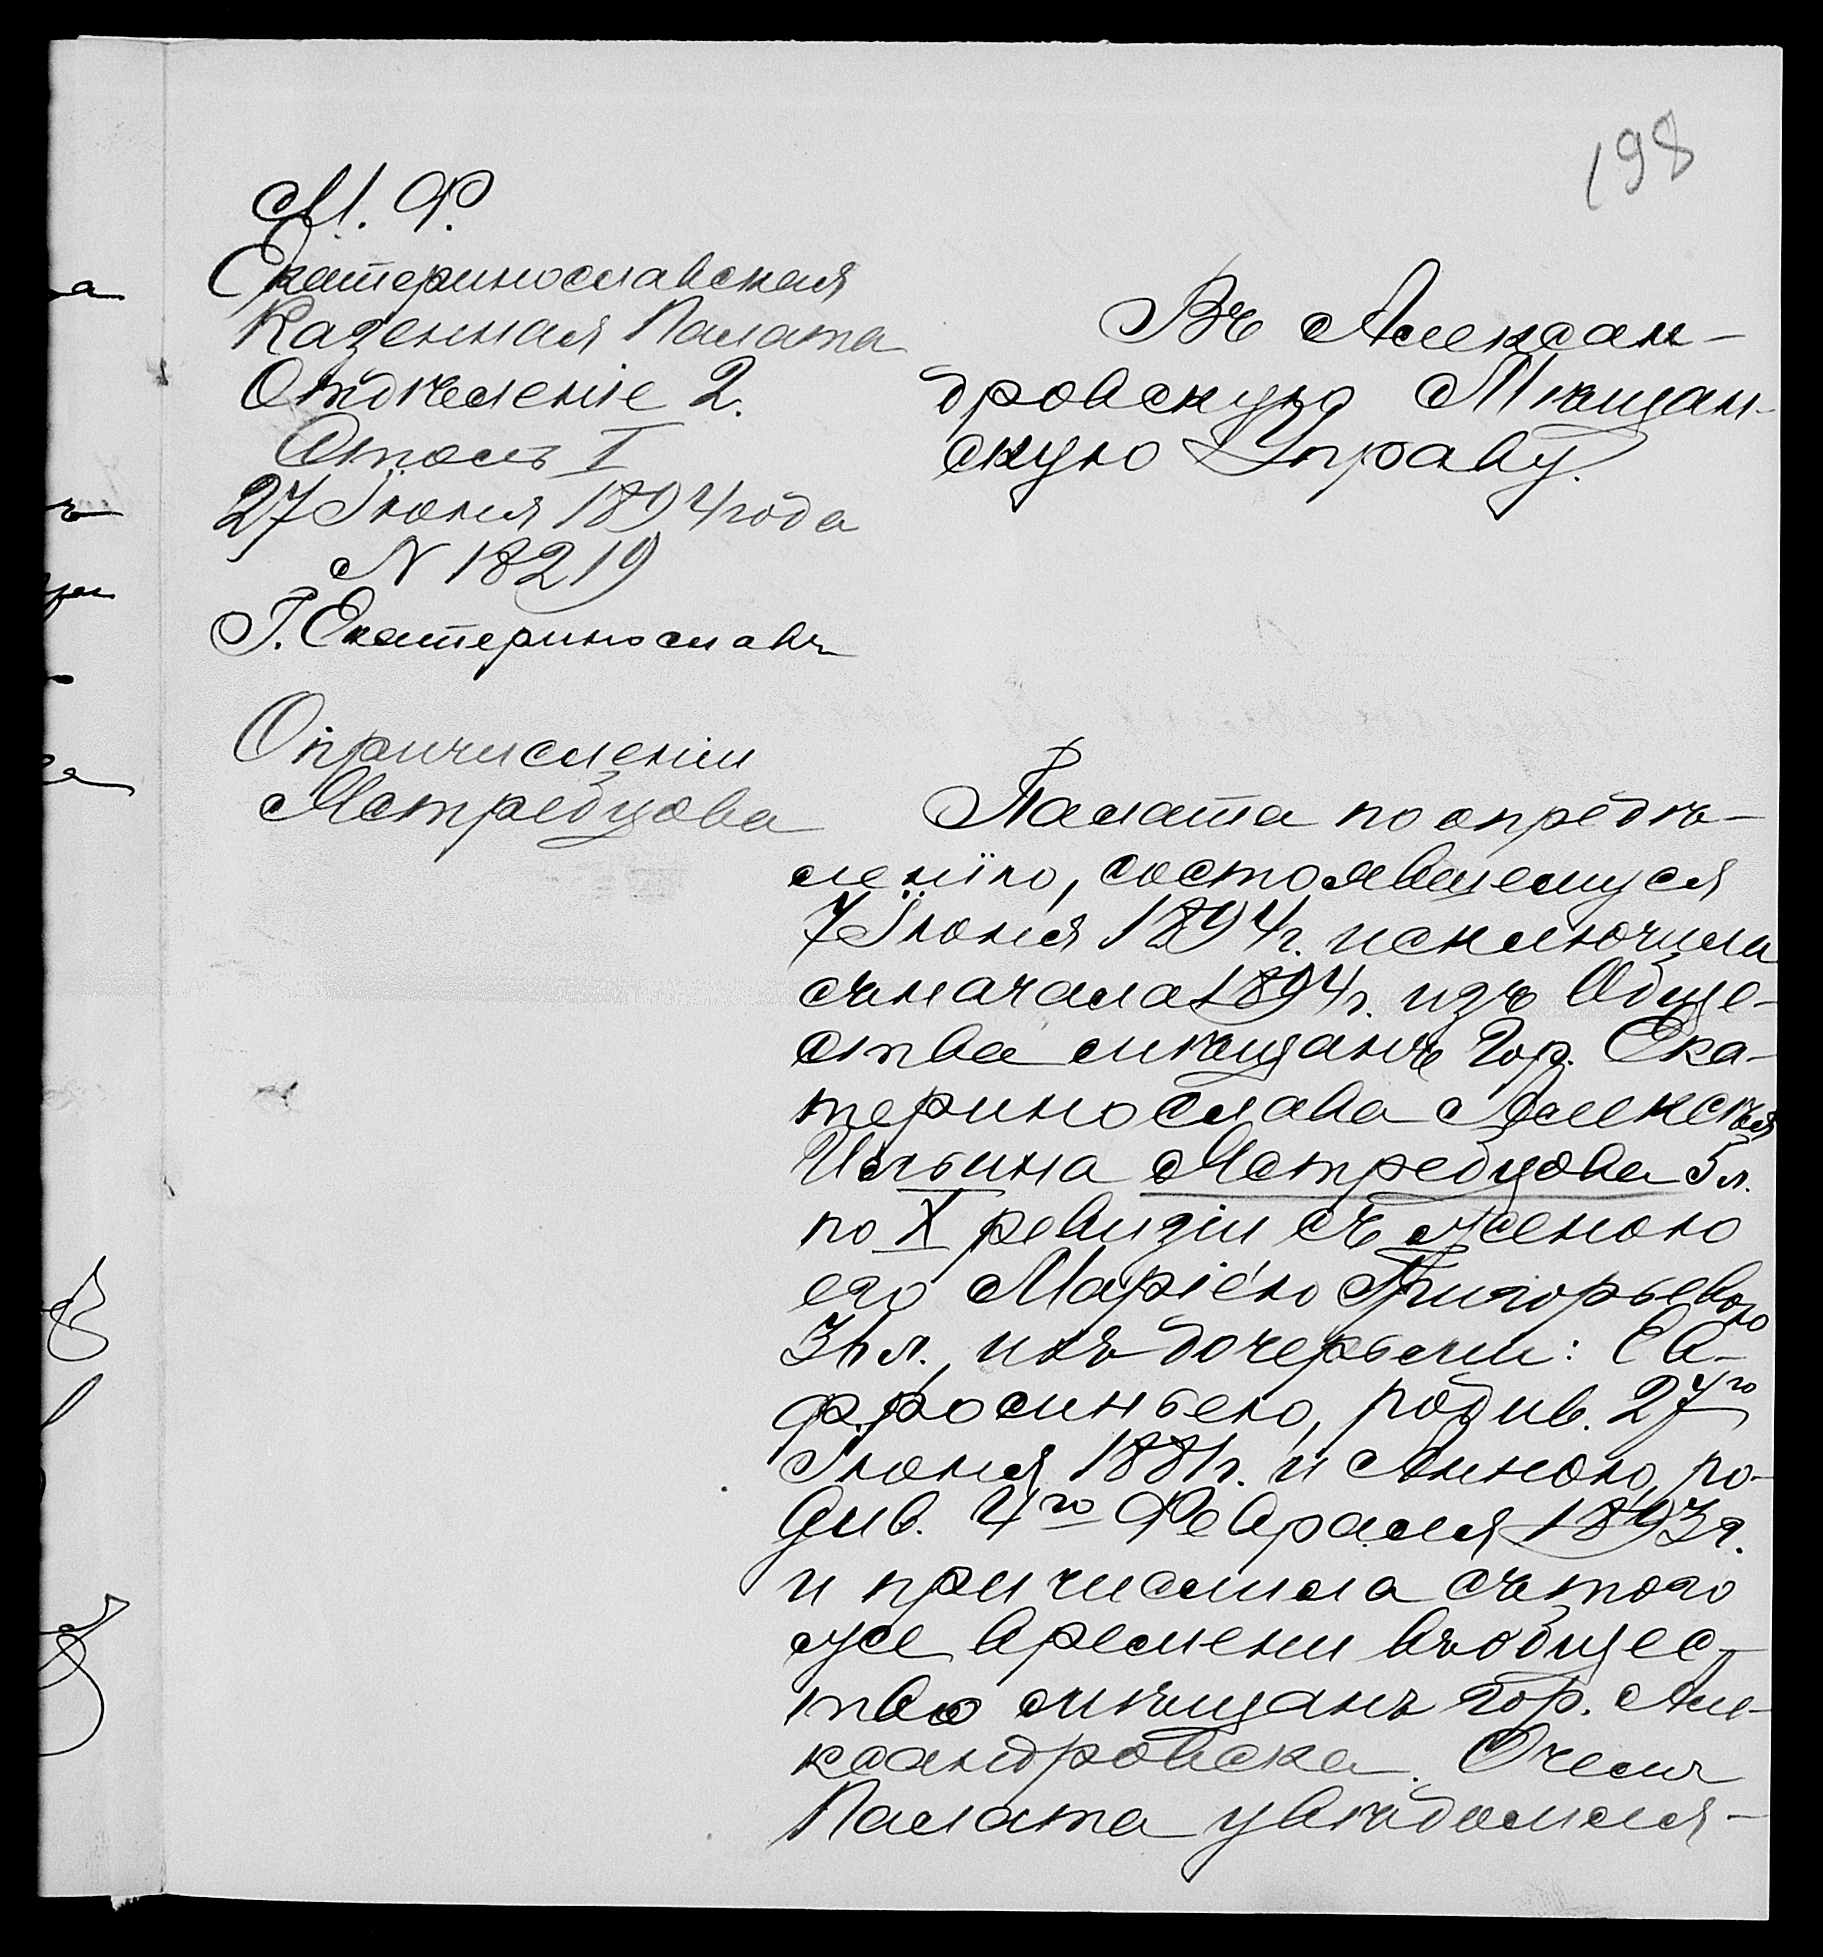 198
М. Ф.
Екатеринославская
Казенная Палата
Отдѣленіе 2.
Столъ I
27 Іюня 1894 года
N 18219
Г. Екатеринославъ
О причисленіи
Ястребцова
Въ Алексан-
дровскую Мѣщан-
скую Управу.
Палата по опредѣ-
ленію, состоявшемуся
7 Іюня 1894 г. исключила
съ начала 1894 г. изъ Обще-
ства мѣщанъ гор. Ека-
теринослава Алексѣя
Ильина Ястребцова 5 л.
по X ревизіи съ женою
его Маріею Григорьевою
36 л., и съ дочерьми: Ев-
фросиньею, родив. 27го
Іюня 1881 г. и Анною, ро-
див. 4го Февраля 1893 г.
и причислила съ того
же времени въ общес-
тво мѣщанъ гор. Але-
ксандровска. О чемъ
Палата увѣдомля-